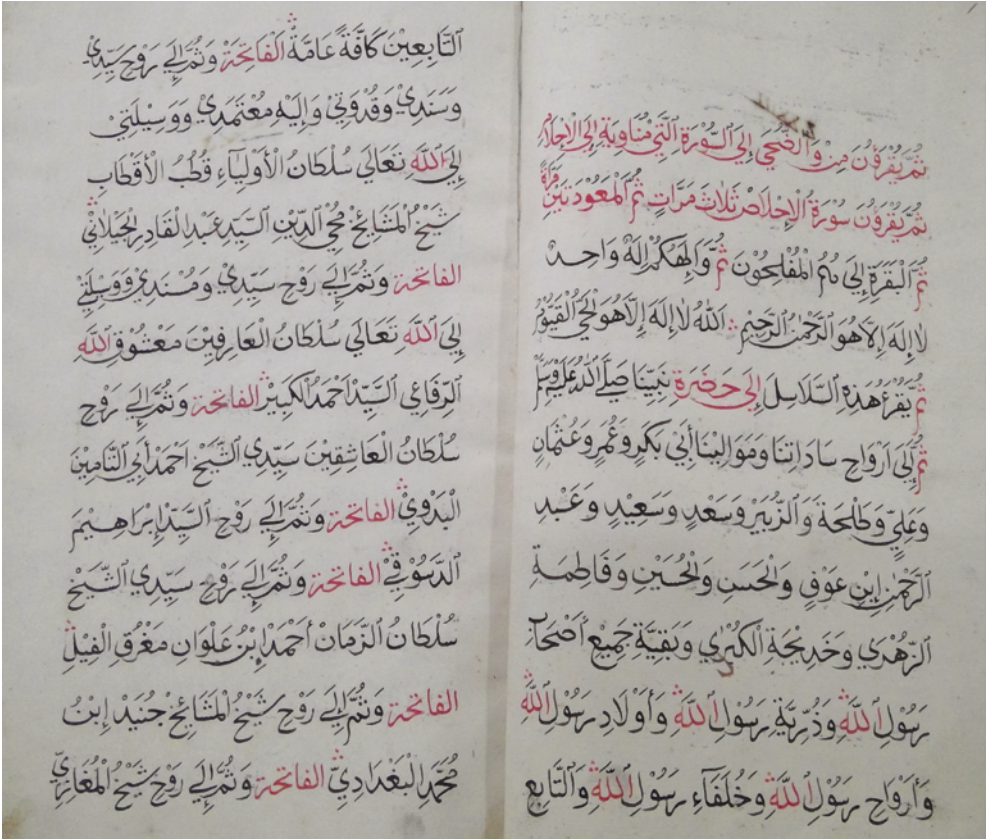 ثُمَّ يَقْرَؤُنَ مِنْ وَالضُّحَى إِلَى السُّوْرَةِ الَّتِيْ مُنَاوِيَةِ إِلَى الْإِخْلَاصْ
ثُمَّ يَقْرَؤُنَ سُوْرَةُ الْإِخْلَاصْ ثَلَاثَ مَرَّاتٍ ثُمَّ الْمَعُوذَتَيْنِ مَرَّةً
ثُمَّ اَلْبَقَرَةِ إِلَى هُمُ الْمُفْلِحُوْنَ ثُمَّ وَاِلَهُكُمْ إِلَهٌ وَاحِدٌ
لَا إِلَهَ إِلَّا هُوَ الرَّحْمٰنُ الرَّحِيْمُ اَللّٰهُ لَا إِلَهَ إِلَّا هُوَ الْحَيُّ الْقَيُّوْمُ
ثُمَّ يَقْرَؤُ هَذِهِ السَّلَاسِلَ إِلَى حَضْرَةِ نَبِيِّنَا صَلَّى اللّٰهُ عَلَيْهِ وَسَلَّمْ
ثُمَّ إِلَى اَرْوَاحِ سَادَاتِنَا وَمَوَالِيْنَا أَبِيْ بَكَرٍ وَعُمَرٍ وَعُثْمَانٍ
وَعَلِيٍّ وَطَلْحَةَ وَالزُّبَيْرِ وَسَعْدٍ وَسَعِيْدٍ وَعَبْدِ
الرَّحْمٰنِ اِبْنِ عَوْفٍ وَالْحَسَنِ وَالْحُسَيْنِ وَفَاطِمَةِ
الزُّهْرَي وَخَدِيْجَةِ الْكُبْرَي وَبَقِيَّةِ جَمِيْعِ أَصْحَابِ
رَسُوْلِ اللّٰهِ وَذُرِّيَةِ رَسُوْلِ اللّٰهِ وَأَوْلَادِ رَسُوْلِ اللّٰهِ
وَأَرْوَاحِ رَسُوْلِ اللّٰهِ وَخُلَفَآءِ رَسُوْلِ اللّٰهِ وَالتَّابِعِ
اَلتَّابِعِيْنَ كَافَّةً عَامَّةً الْفَاتِحَةْ وَثُمَّ إِلَي رَوْحِ سَيِّدِيْ
وَسَنَدِيْ وَقُدْوَتِيْ وَإِلَيْهِ مُعْتَمَدِيْ وَوَسِيْلَتِيْ
إِلَى اللّٰهِ تَعَالَي سُلْطَانُ الْأَوْلِيَآءِ قُطْبُ الْأَقْطَابِ
شَيْخُ الْمَشَائِخْ مُحْيِ الدِّيْنِ السَّيِّدِ عَبْدِ الْقَادِرِ الْجَيْلَانِيْ
الفَاتِحَةْ وَثُمَّ إِلَي رَوْحِ سَيِّدِيْ وَمُسْنَدِيْ وَوَسِيْلَتِيْ
إِلَى اللّٰهِ تَعَالَي سُلْطَانُ الْعَارِفِيْنَ مَعْشُوْقِ اللّٰهِ
الرِّفَاعِي السَّيِّدْ اَحْمَدُ الْكَبِيْرْ الْفَاتِحَةْ وَثُمَّ إِلَي رَوْحِ
سُلْطَانُ الْعَاشِقِيْنَ سَيِّدِي الشَّيْخِ اَحْمَدْ أَبِي الثَّامِيْنَ
الْبَدْوِيْ الفَاتِحَةْ وَثُمَّ إِلَي رَوْحِ السَّيِّدْ اِبْرَاهِيْمَ
الدَّسُوْقِيْ الفَاتِحَةْ وَثُمَّ إِلَي رَوْحِ سَيِّدِي الشَّيْخْ
سُلْطَانُ الزَّمَانْ أَحْمَدْ اِبْنُ عَلْوَانِ مَغْرُقِ الْفِيْلْ
الفَاتِحَةْ وَثُمَّ إِلَي رَوْحِ شَيْخُ الْمَشَائِخْ جُنَيْدِ اِبْنُ
مُحَمَّدِ الْبَغْدَادِيّْ الفَاتِحَةْ وَثُمَّ إِلَي رَوْحِ شَيْخُ الْمُغَازِيِّ